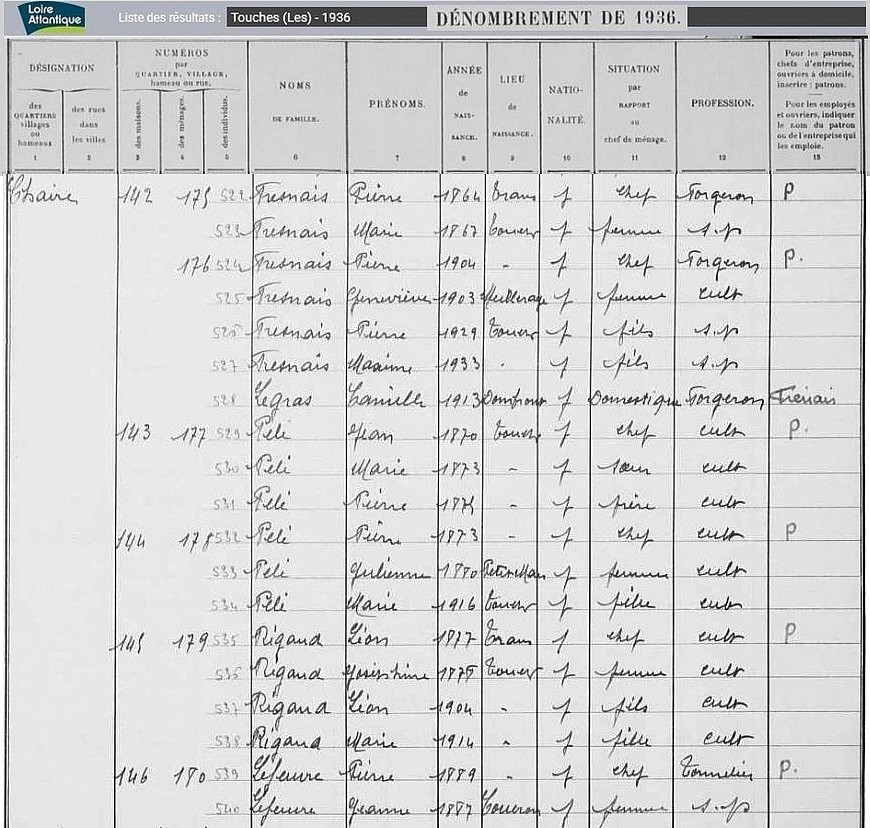 Loire Atlantique
Liste des résultats : Touches (Les) - 1936
DÉNOMBREMENT DE 1936.
DÉSIGNATION
des QUARTIERS villages ou hameaux
des rues dans les villes
NUMÉROS par QUARTIER, VILLAGE, hameau ou rue.
des maisons.
des ménages.
des individus.
NOMS DE FAMILLE.
PRÉNOMS.
ANNÉE de NAISSANCE.
LIEU de NAISSANCE.
NATIONALITÉ.
SITUATION par RAPPORT au chef de ménage.
PROFESSION.
Pour les patrons, chefs d'entreprise, ouvriers à domicile, inscrire : patrons.
Pour les employés et ouvriers, indiquer le nom du patron ou de l'entreprise qui les emploie.
1 2 3 4 5 6 7 8 9 10 11 12 13
142 175 522 Tresnais Pierre 1864 Trans f chef Forgeron P
523 Tresnais Marie 1867 f femme s.p
176 524 Tresnais Pierre 1904 - f chef Forgeron P.
525 Tresnais Geneviève 1903 Meilleraye f femme cult
526 Tresnais Pierre 1929 f fils s.p
527 Tresnais Maxime 1933 - f fils s.p
528 Legras Camille 1913 Domfront f Domestique Forgeron
143 177 529 Pelé Jean 1870 f chef cult P.
530 Pelé Marie 1873 - f sœur cult
531 Pelé Pierre 1875 - f frère cult
144 178 532 Pelé Pierre 1873 - f chef cult P
533 Pelé Julienne 1880 f femme cult
534 Pelé Marie 1916 f fille cult
145 179 535 Rigaud Léon 1877 Trans f chef cult P
536 Rigaud Joséphine f femme cult
537 Rigaud Léon 1904 - f fils cult
538 Rigaud Marie 1914 - f fille cult
146 180 539 Lefeuvre Pierre 1889 - f chef Tonnelier P.
540 Lefeuvre Jeanne 1887 Couëron f femme s.p